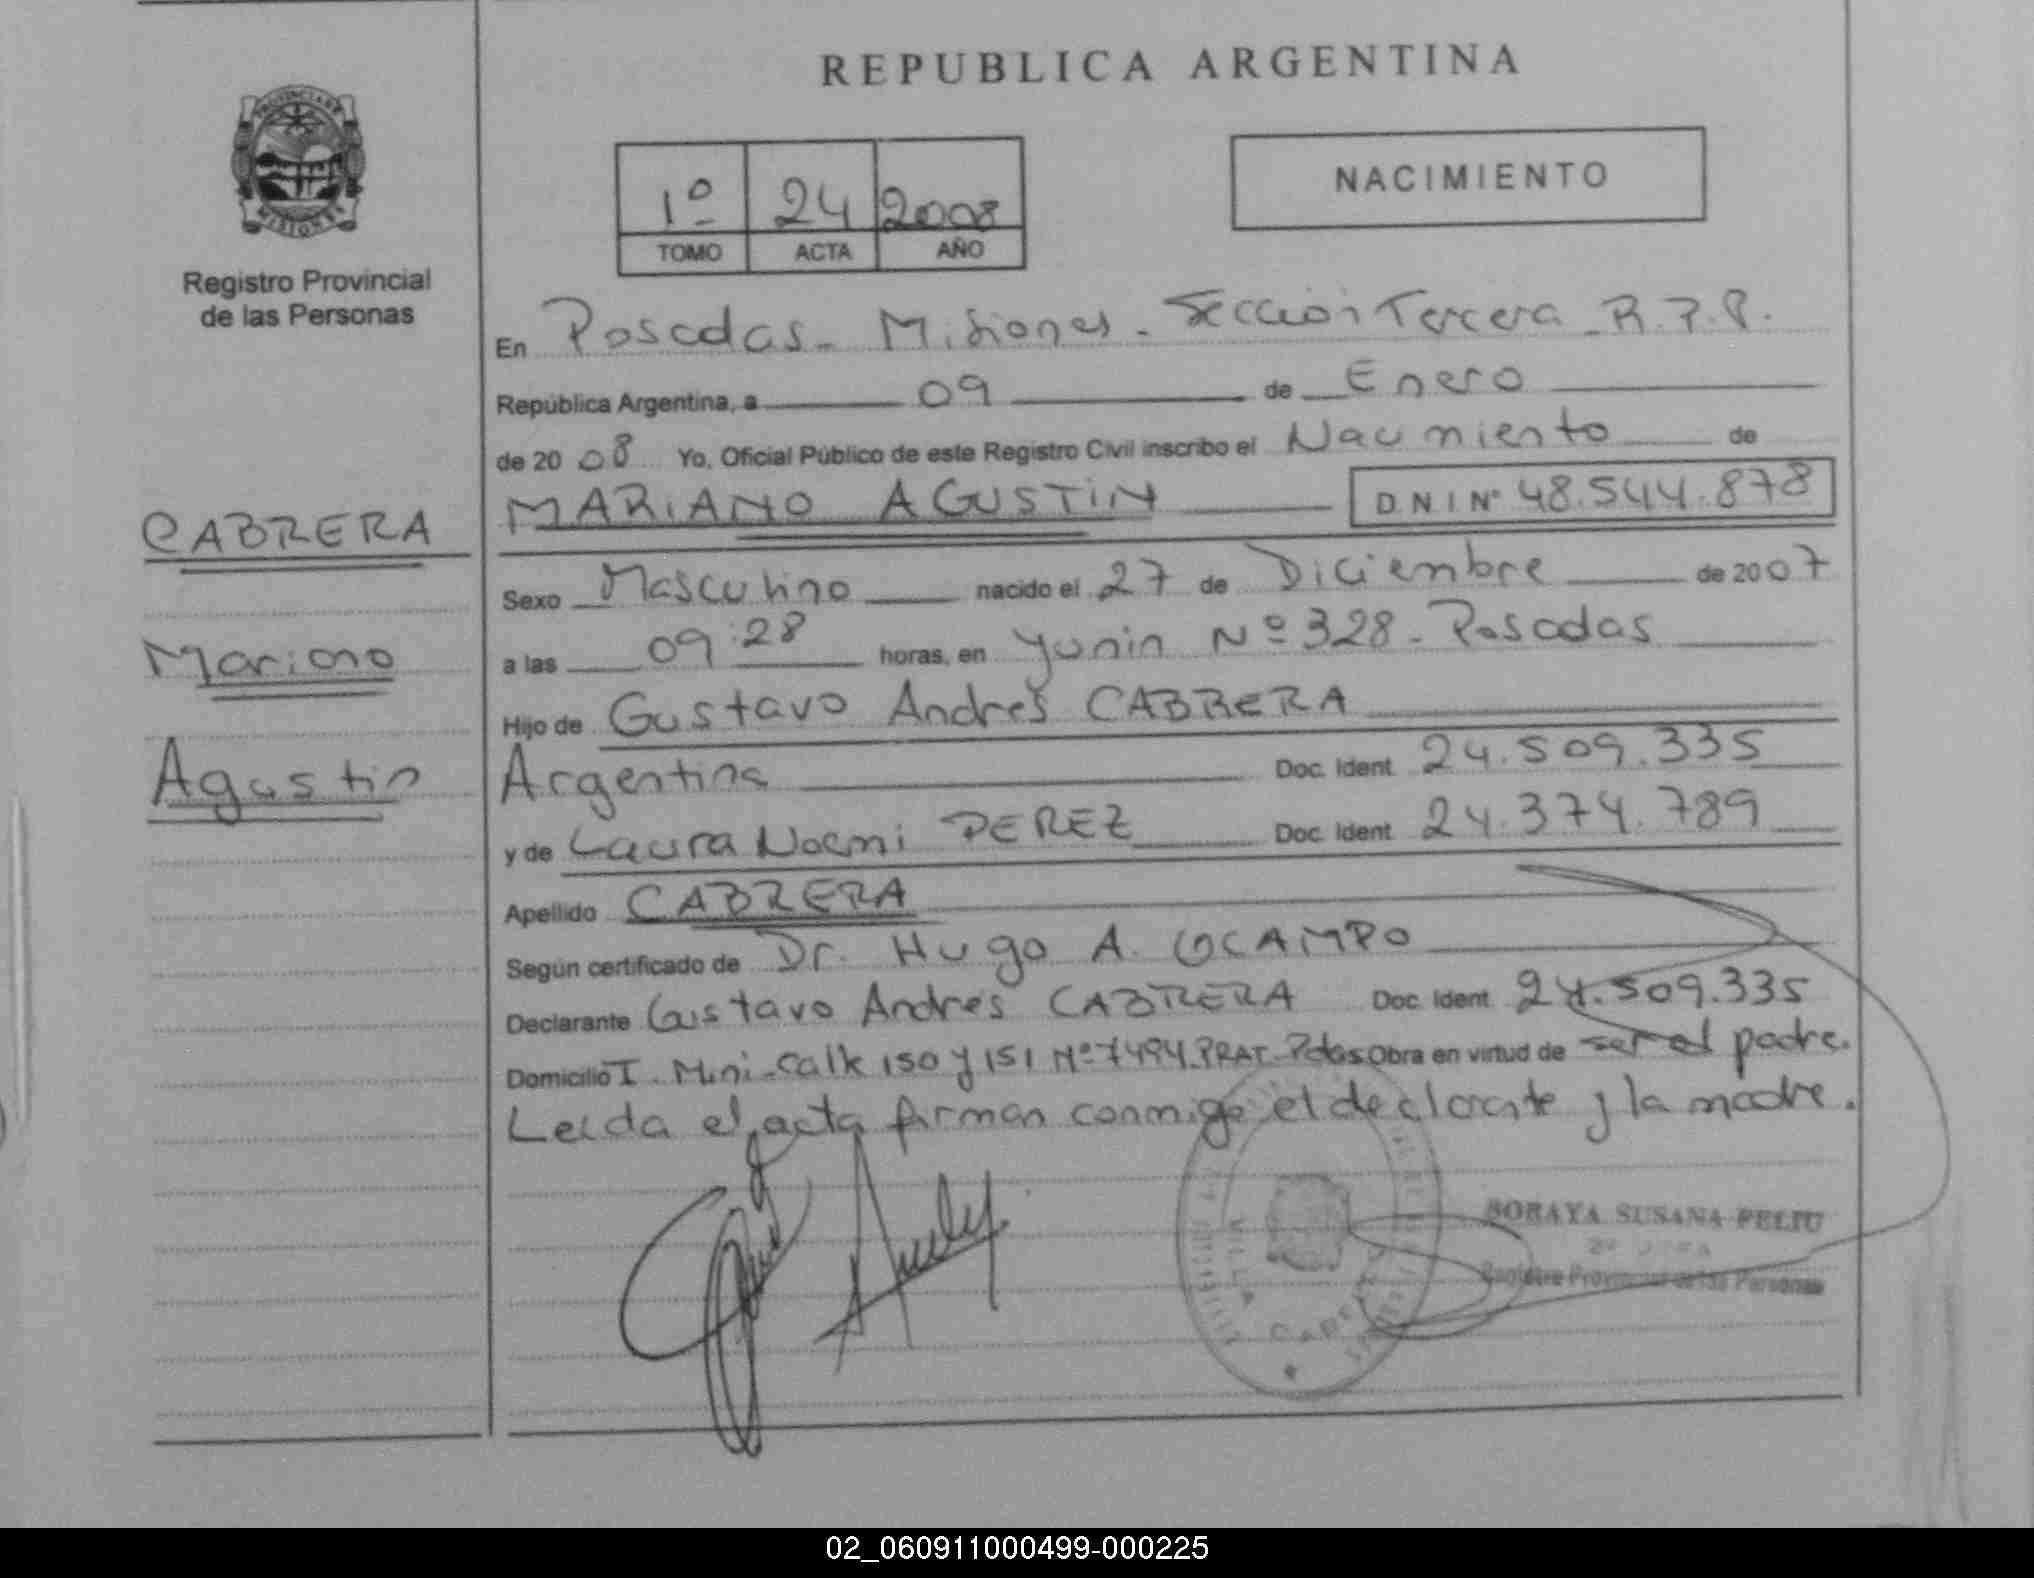 REPUBLICA ARGENTINA
PROVINCIA DE MISIONES
Registro Provincial
de las Personas
1º 24 2008
TOMO ACTA AÑO
NACIMIENTO
En Posadas - Misiones - Sección Tercera - R.P.P.
República Argentina, a 09 de Enero
de 2008 Yo, Oficial Público de este Registro Civil inscribo el Nacimiento de
MARIANO AGUSTIN D N I Nº 48.544.878
CABRERA
Mariano
Agustin
Sexo Masculino nacido el 27 de Diciembre de 2007
a las 09:28 horas, en Yunin Nº 328 - Posadas
Hijo de Gustavo Andrés CABRERA
Argentina Doc. Ident. 24.509.335
y de Laura Noemi PEREZ Doc. Ident. 24.374.789
Apellido CABRERA
Según certificado de Dr. Hugo A. OCAMPO
Declarante Gustavo Andrés CABRERA Doc. Ident. 24.509.335
Domicilio I. Mini - Calle 150 y 151 Nº 7494. PRAT. Pdas Obra en virtud de ser el padre.
Leida el acta firman conmigo el declarante y la madre.
VILLA CABELLO
SORAYA SUSANA FELIU
Registro Provincial de las Personas
02_060911000499-000225